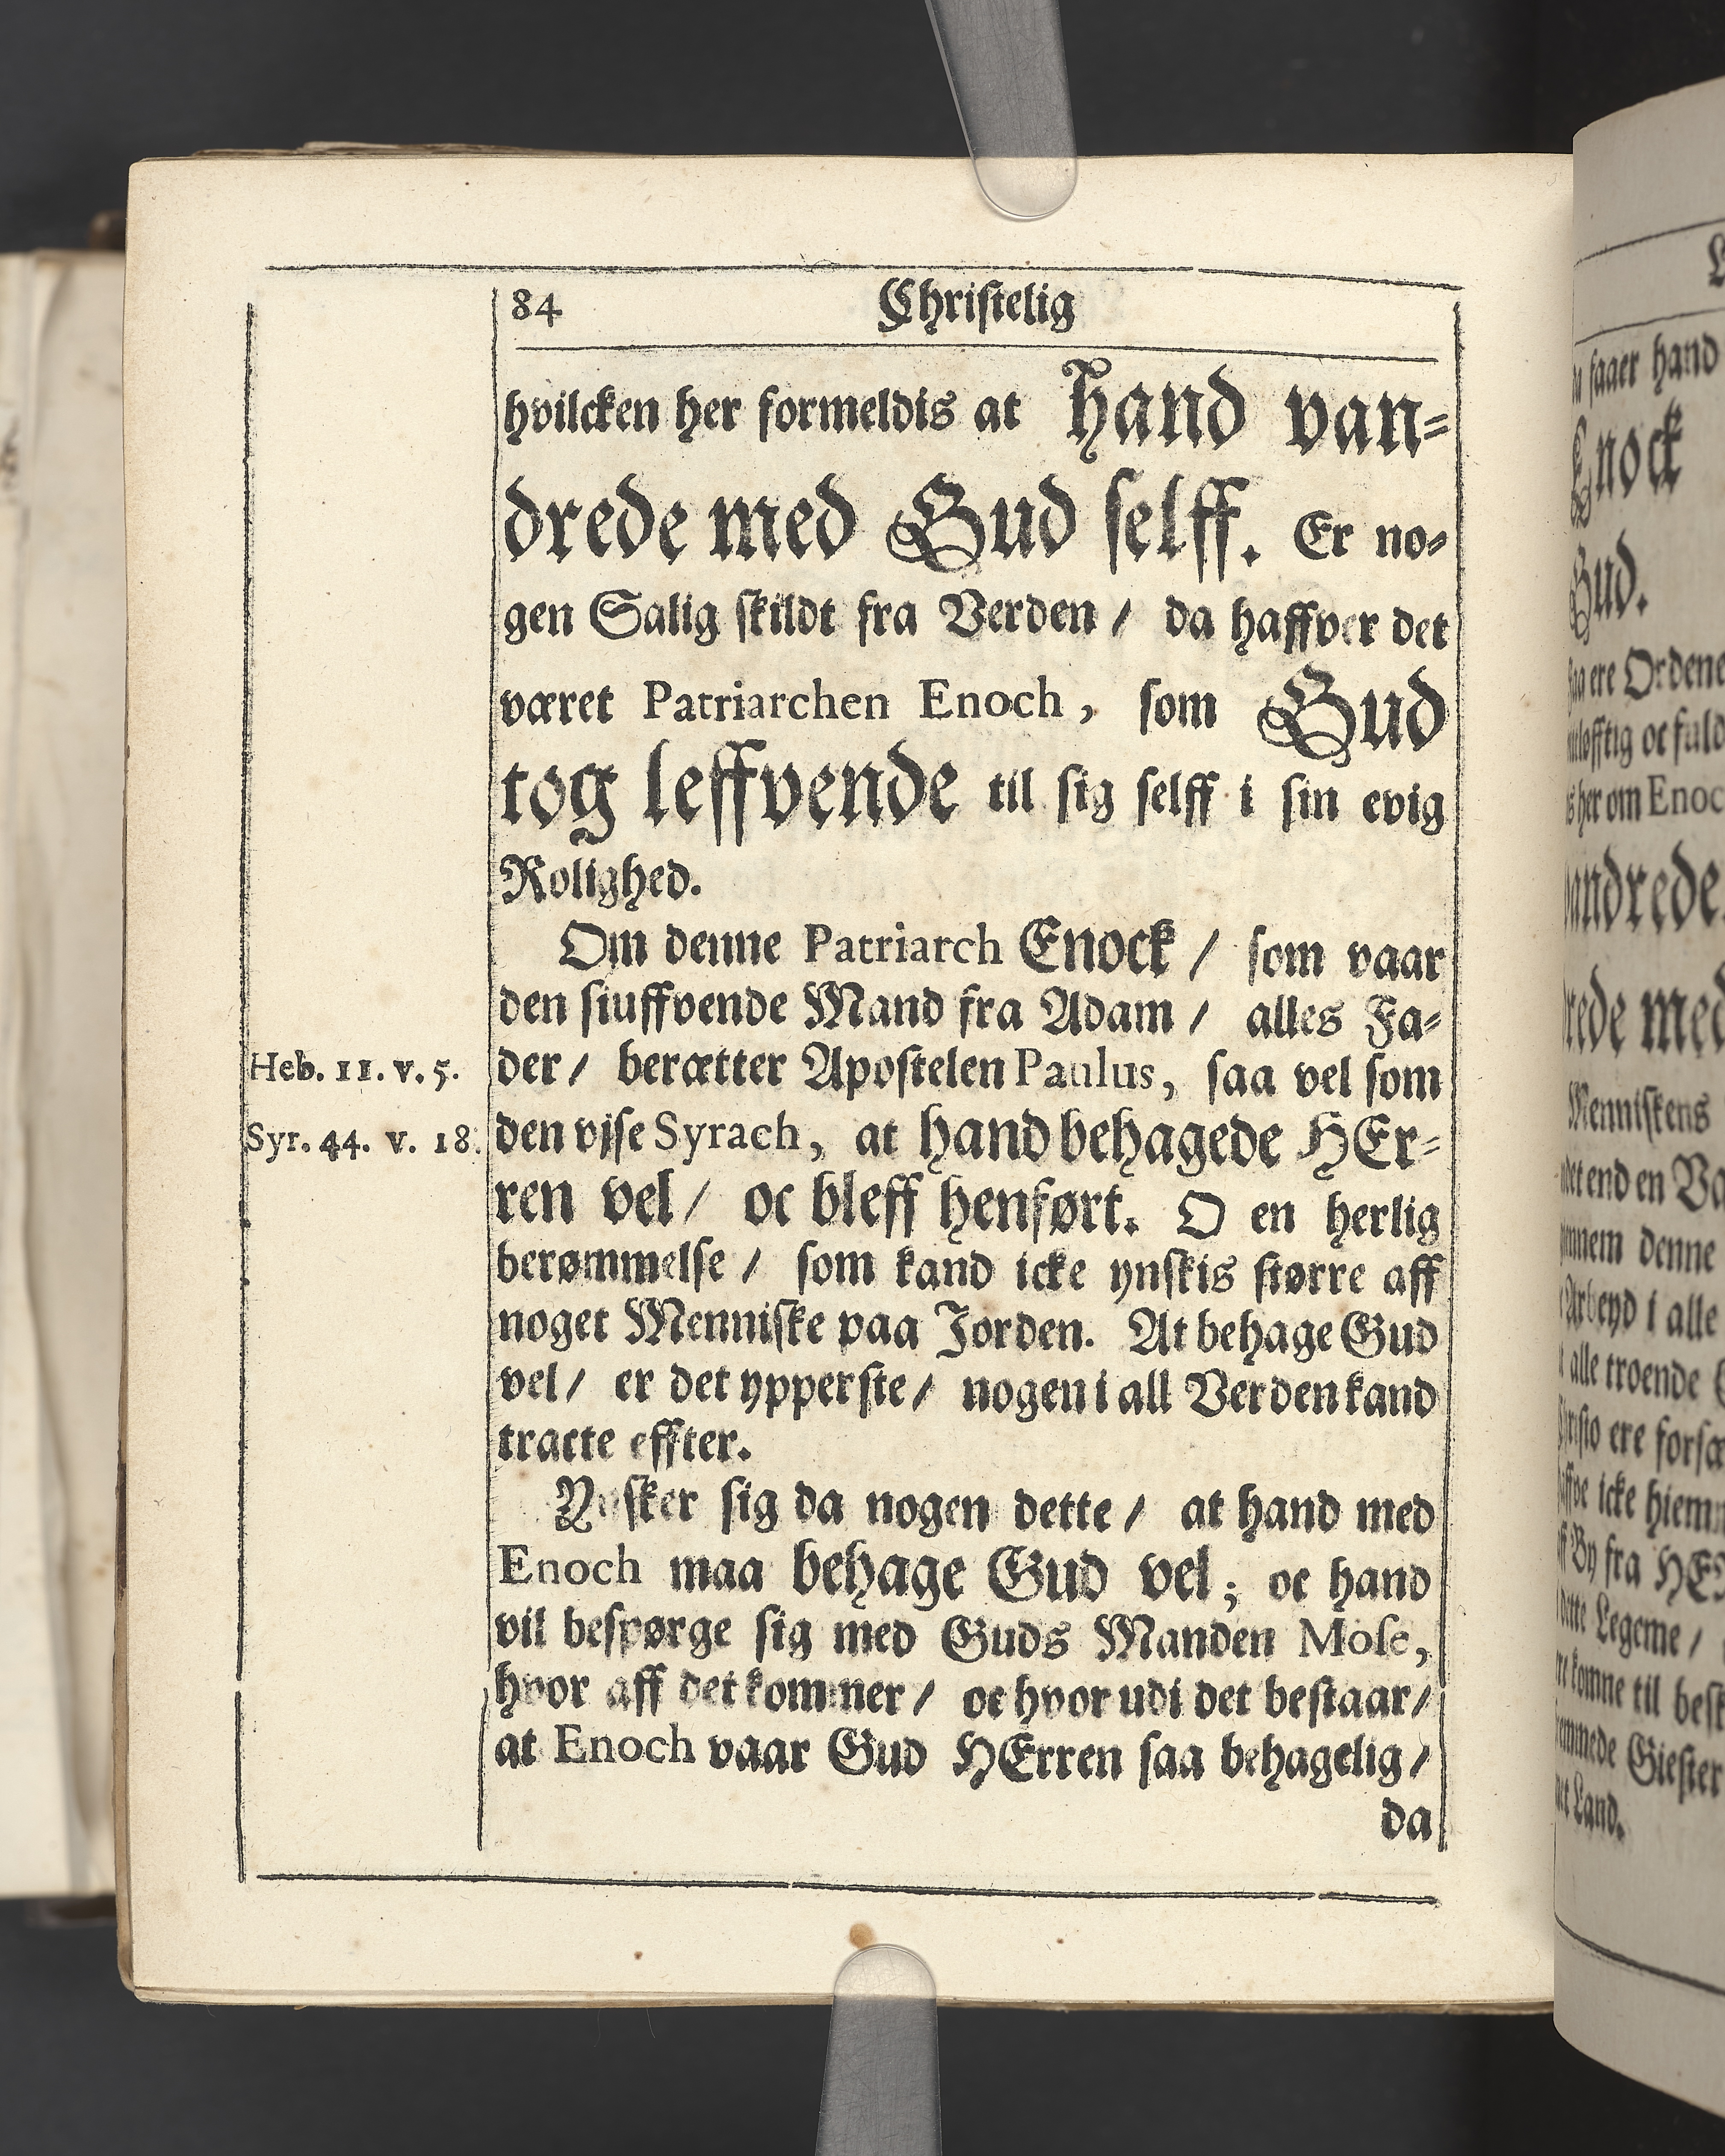 84 Christelig
hvilcken her formeldis at Hand van⸗
drede med Gud selff. Er no⸗
gen Salig skildt fra Verden / da haffver det
været Patriarchen Enoch, som Gud
tog leffvende til sig selff i sin evig
Rolighed.
Om denne Patriarch Enock / som vaar
den siuffvende Mand fra Adam / alles Fa⸗
Heb. 11. v. 5. der / berætter Apostelen Paulus, saa vel som
Syr. 44. v. 18. den vjse Syrach, at hand behagede HEr⸗
ren vel / oc bleff henført. O en herlig
berømmelse / som kand icke ynskis større aff
noget Menniske paa Jorden. At behage Gud
vel / er det ypperste / nogen i all Verden kand
tracte effter.
Ynsker sig da nogen dette / at hand med
Enoch maa behage Gud vel; oc hand
vil bespørge sig med Guds Manden Mose,
hvor aff det kommer / oc hvor udi det bestaar /
at Enoch vaar Gud HErren saa behagelig /
da
saaer hand
Enock
Gud.
ere Ordene
oc fuld
her om Enoc
vandrede
med
Menniskens
end en
denne
Arbeyd i alle
alle troende
ere
icke hiem
By fra
Legeme /
komne til
Giester
Land.